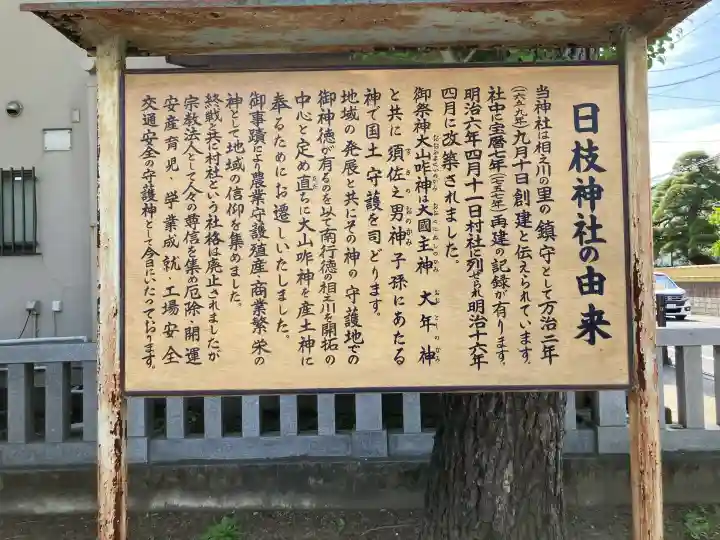 日枝神社の由来
当神社は相之川の里の鎮守として万治二年
(一六五九年)九月十日創建と伝えられています。
社中に宝暦七年(一七五七年)再建の記録が有ります。
明治六年四月十一日村社に列せられ明治十六年
四月に改築されました。
御祭神大山咋神は大國主神 大年神
と共に須佐之男神子孫にあたる
神で国土守護を司どります。
地域の発展と共にその神の守護地での
御神徳が有るのを以て南行徳の相之川を開拓の
中心と定め直ちに大山咋神を産土神に
奉るためにお遷しいたしました。
御事蹟により農業守護殖産・商業繁・栄の
神として地域の信仰を集めました。
終戦と共に村社という社格は廃止されましたが
宗教法人として人々の尊信を集め厄除・開運
安産育児・学業成就・工場安全
交通安全の守護神として今日にいたっております。